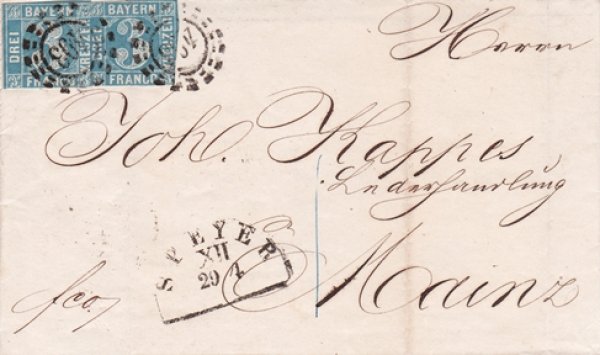 BAYERN BAYERN
DREI KREUZER KREUZER
FRANCO
Herrn
Joh. Kappes
Lederhandlung
Mainz
SPEYER
XII
29 1
fco